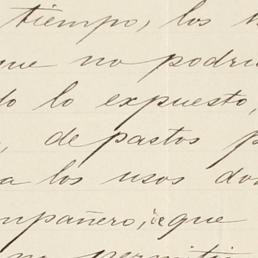 tiempo, los
que no podri
do lo expuesto,
, de pastos p
a los usos do
mpañero, que
no permiti